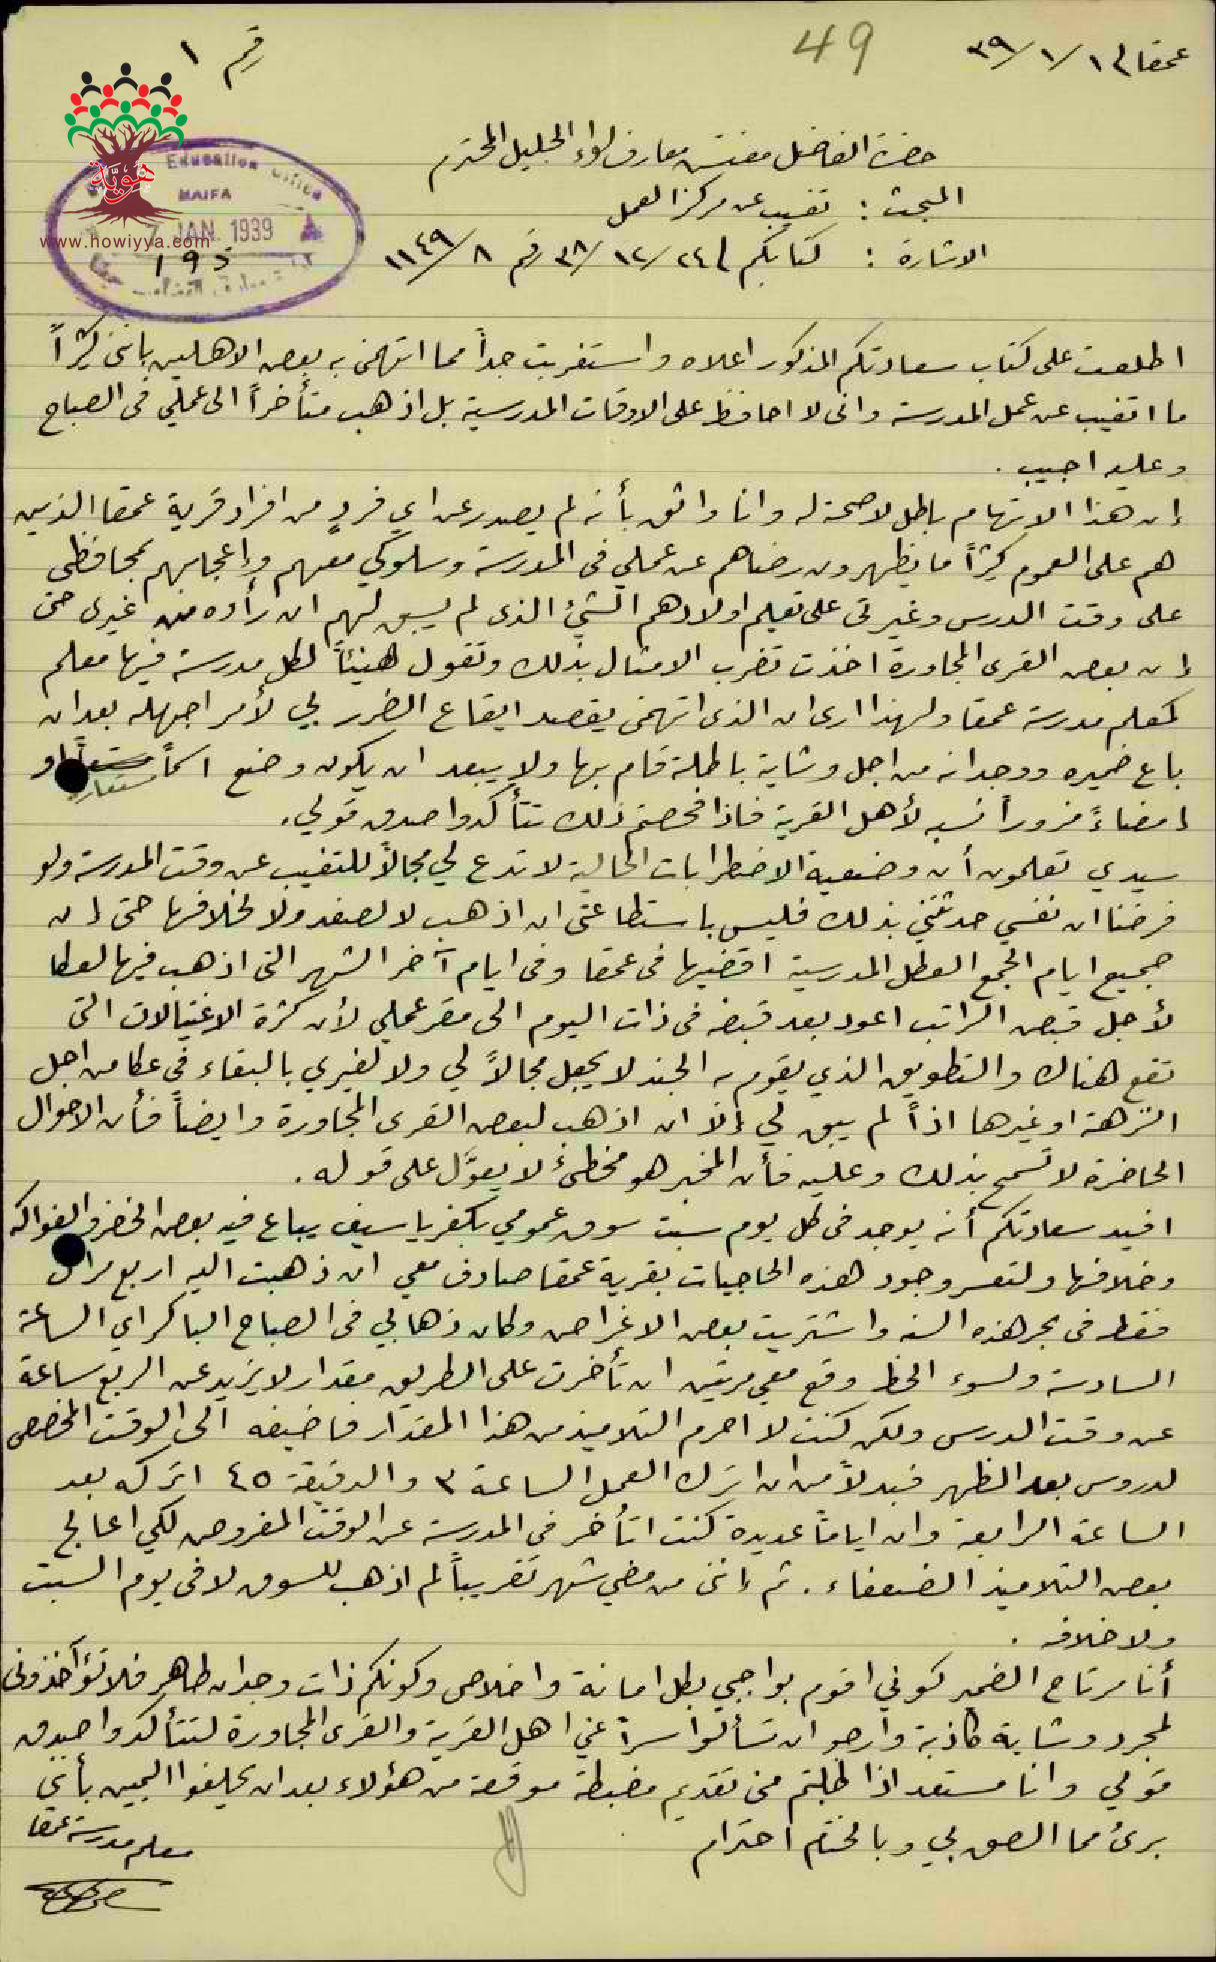 عمقا في ١/١/٣٩
49
رقم ١
هوية
www.howiyya.com
Education Office
HAIFA
7 JAN. 1939
حضرة الفاضل مفتش معارف لواء الجليل المحترم
المبحث : تغيب عن مركز العمل
الاشارة : كتابكم في ٢٤/١٢/٣٨ رقم ٨/١١٤٩
اطلعت على كتاب سعادتكم المذكور اعلاه واستغربت جداً مما اتهمني به بعض الاهلين بانني كثيراً
ما اتغيب عن عمل المدرسة واني لا احافظ على الاوقات المدرسية بل اذهب متأخراً الى عملي في الصباح
وعليه اجيب .
إن هذا الاتهام باطل لا صحة له وانا واثق بأنه لم يصدر عن اي فردٍ من افراد قرية عمقا الذين
هم على العموم كثيراً ما يظهرون رضاهم عن عملي في المدرسة وسلوكي معهم وإعجابهم بمحافظتي
على وقت الدرس وغيرتي على تعليم اولادهم الشيء الذي لم يسبق لهم ان رأوه من غيري حتى
إن بعض القرى المجاورة اخذت تضرب الامثال بذلك وتقول هنيئاً لكل مدرسة فيها معلم
كمعلم مدرسة عمقا ولهذا ارى ان الذي اتهمني يقصد ايقاع الضرر بي لأمر اجهله بعد ان
باع ضميره ووجدانه من اجل وشاية باطلة قام بها ولا يبعد ان يكون وضع اسماً مستعاراً او
إمضاءً مزوراً نسبه لأهل القرية فاذا فحصتم ذلك تتأكدوا صدق قولي .
سيدي تعلمون أن وضعية الاضطرابات الحالية لا تدع لي مجالاً للتغيب عن وقت المدرسة ولو
فرضنا ان نفسي حدثتني بذلك فليس باستطاعتي ان اذهب لا لصفد ولا لخلافها حتى إن
جميع ايام الجمع العطل المدرسية اقضيها في عمقا وفي ايام آخر الشهر التي اذهب فيها لعكا
لأجل قبض الراتب اعود بعد قبضه في ذات اليوم الى مقر عملي لأن كثرة الاغتيالات التي
تقع هناك والتطويق الذي يقوم به الجند لا يجعل مجالاً لي ولا لغيري بالبقاء في عكا من اجل
النزهة او غيرها اذاً لم يبق لي إلا ان اذهب لبعض القرى المجاورة وايضاً فأن الاحوال
الحاضرة لا تسمح بذلك وعليه فأن المخبر هو مخطئ لا يعوَّل على قوله .
افيد سعادتكم أنه يوجد في كل يوم سبت سوق عمومي بكفرياسيف يباع فيه بعض الخضر والفواكه
وخلافها ولتعسر وجود هذه الحاجيات بقرية عمقا صادف معي ان ذهبت اليه اربع مرات
فقط في بحر هذه السنة واشتريت بعض الاغراض وكان ذهابي في الصباح الباكر اي الساعة
السادسة ولسوء الحظ وقع معي مرتين ان تأخرت على الطريق مقدار لا يزيد عن الربع ساعة
عن وقت الدرس ولكن كنت لا احرم التلاميذ من هذا المقدار فاضيفه الى الوقت المخصص
لدروس بعد الظهر فبدلاً من ان اترك العمل الساعة ٣ والدقيقة ٤٥ اتركه بعد
الساعة الرابعة وان اياماً عديدة كنت اتأخر في المدرسة عن الوقت المفروض لكي اعالج
بعض التلاميذ الضعفاء . ثم إنني من مضي شهر تقريباً لم اذهب للسوق لا في يوم السبت
ولا خلافه .
أنا مرتاح الضمير كوني اقوم بواجبي بكل امانة واخلاص وكونكم ذات وجدان طاهر فلا تؤآخذوني
لمجرد وشاية كاذبة وارجو ان تسألوا سراً عني اهل القرية والقرى المجاورة لتتأكدوا صدق
قولي وانا مستعد اذا طلبتم مني تقديم مضبطة موقعة من هؤلاء بعد ان يحلفوا اليمين بأني
برئ مما الصق بي وبالختام احترام
معلم مدرسة عمقا